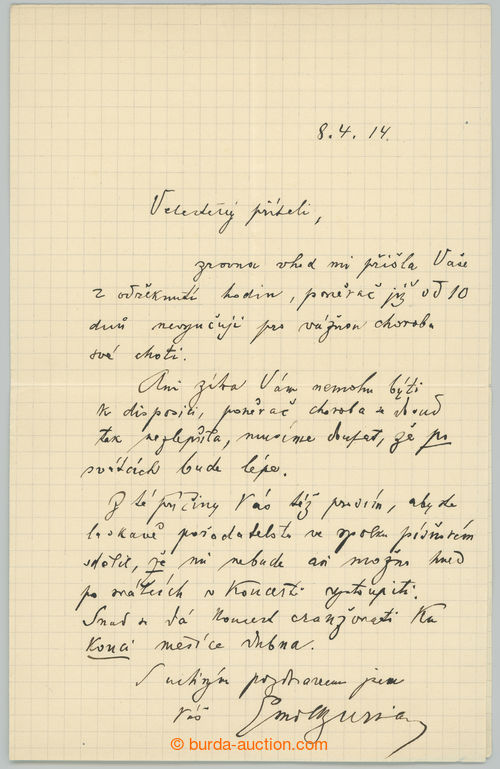 8. 4. 14.
Velectěný příteli,
zrovna vhod mi přišla Vaše
z odřeknutí hodin, poněvač již od 10
dnů nevyučuji pro vážnou chorobu
své choti.
Ani zítra Vám nemohu býti
k disposici, poněvač choroba se dosud
tak nezlepšila, musíme doufat, že po
svátcích bude lépe.
Z té příčiny Vás též prosím, abyste
laskavě pořadatelstvu ve spolku
sdělil, že mi nebude ani možno hned
po svátcích v koncertě vystoupiti.
Snad se dá koncert aranžovati ku
konci měsíce dubna.
S uctivým pozdravem jsem
Váš
© burda-auction.com